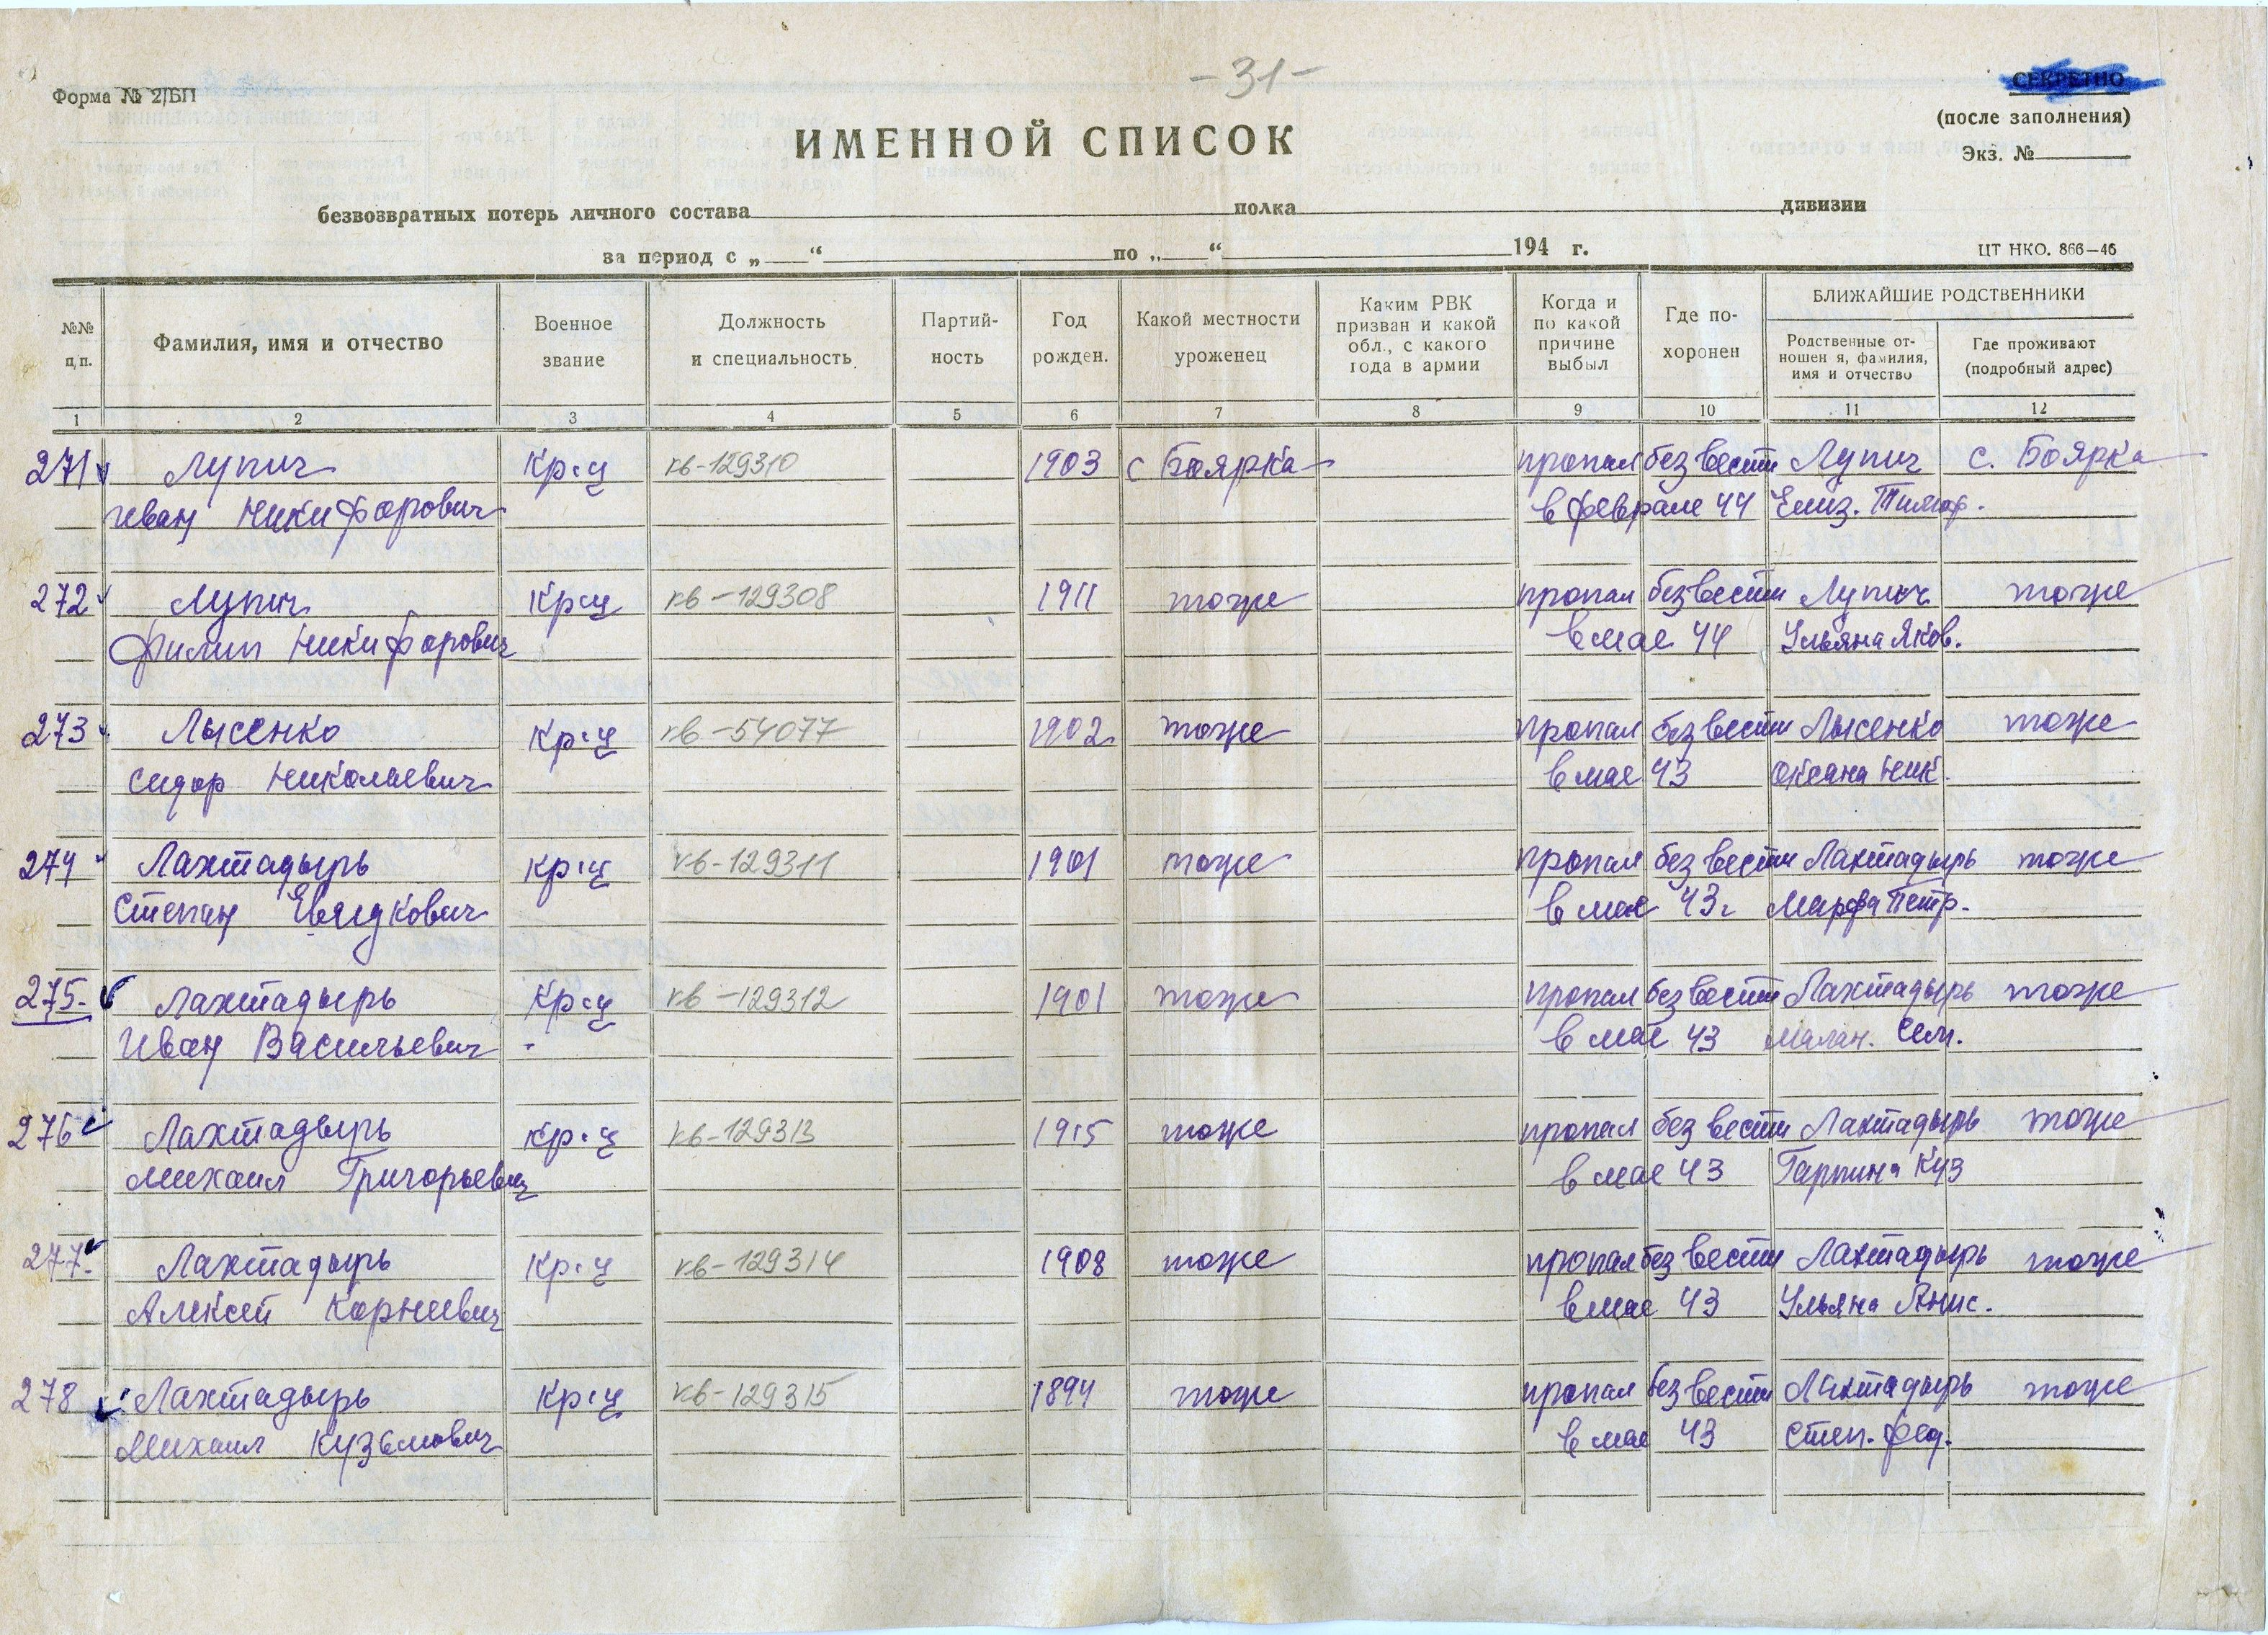 - 31 -
СЕКРЕТНО
Форма № 2/БП
(после заполнения)
ИМЕННОЙ СПИСОК
Экз. №
безвозвратных потерь личного состава полка дивизии
за период с „ “ по „ “ 194 г. ЦТ НКО. 866—46
№№ п, п.
Фамилия, имя и отчество
Военное звание
Должность и специальность
Партий-
ность
Год рожден.
Какой местности уроженец
Каким РВК
призван и какой
обл., с какого
года в армии
Когда и
по какой
причине
выбыл
Где по-
хоронен
БЛИЖАЙШИЕ РОДСТВЕННИКИ
Родственные от-
ношен я, фамилия,
имя и отчество
Где проживают
(подробный адрес)
1 2 3 4 5 6 7 8 9 10 11 12
271 Лупич Кр-ц кв-129310 1903 с Боярка пропал без вести Лупич с. Боярка
Иван Никифорович в феврале 44 Елиз. Тимоф.
272 Лупич Кр-ц кв-129308 1911 тоже пропал без вести Лупич тоже
Филип Никифорович в мае 44 Ульяна Яков.
273 Лысенко Кр-ц кв-54077 1902 тоже пропал без вести Лысенко тоже
Сидор Николаевич в мае 43 Оксана Ник.
274 Лахтадырь кр-ц кв-129311 1901 тоже пропал без вести Лахтадырь тоже
Степан в мае 43г Марфа Петр.
275. Лахтадырь Кр-ц кв-129312 1901 тоже пропал без вести Лахтадырь тоже
Иван Васильевич в мае 43 Малан. Сем.
276 Лахтадырь кр-ц кв-129313 1915 тоже пропал без вести Лахтадырь тоже
Михаил Григорьевич в мае 43 Гарпина Куз
277. Лахтадырь Кр-ц кв-129314 1908 тоже пропал без вести Лахтадырь тоже
Алексей Корнеевич в мае 43 Ульяна Анис.
278 Лахтадырь Кр-ц кв-129315 1894 тоже пропал без вести Лахтадырь тоже
Михаил Кузьмович в мае 43 Степ. Фед.